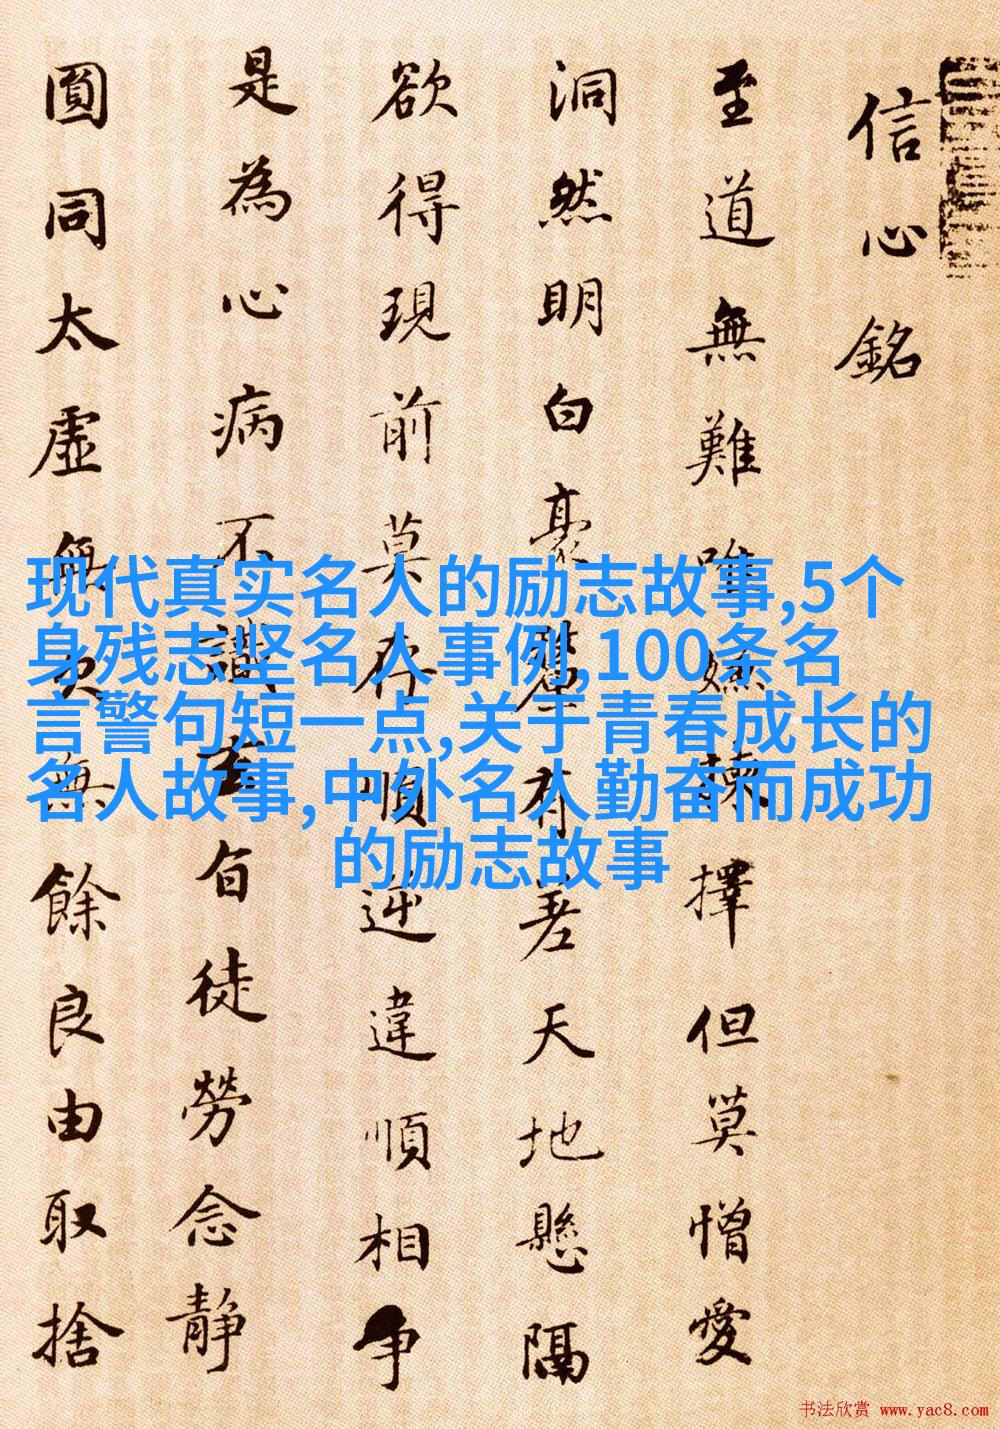 信心銘
至道無難唯嫌揀擇但莫憎愛
洞然明白豪釐有差天地懸隔
欲得現前莫存順逆違順相爭
是為心病不識玄旨徒勞念静
圓同太虛無欠無餘良由取捨
现代真实名人的励志故事,5个
身残志坚名人事例,100条名
言警句短一点,关于青春成长的
名人故事,中外名人勤奋而成功
的励志故事
书法欣赏 www.yac8.com